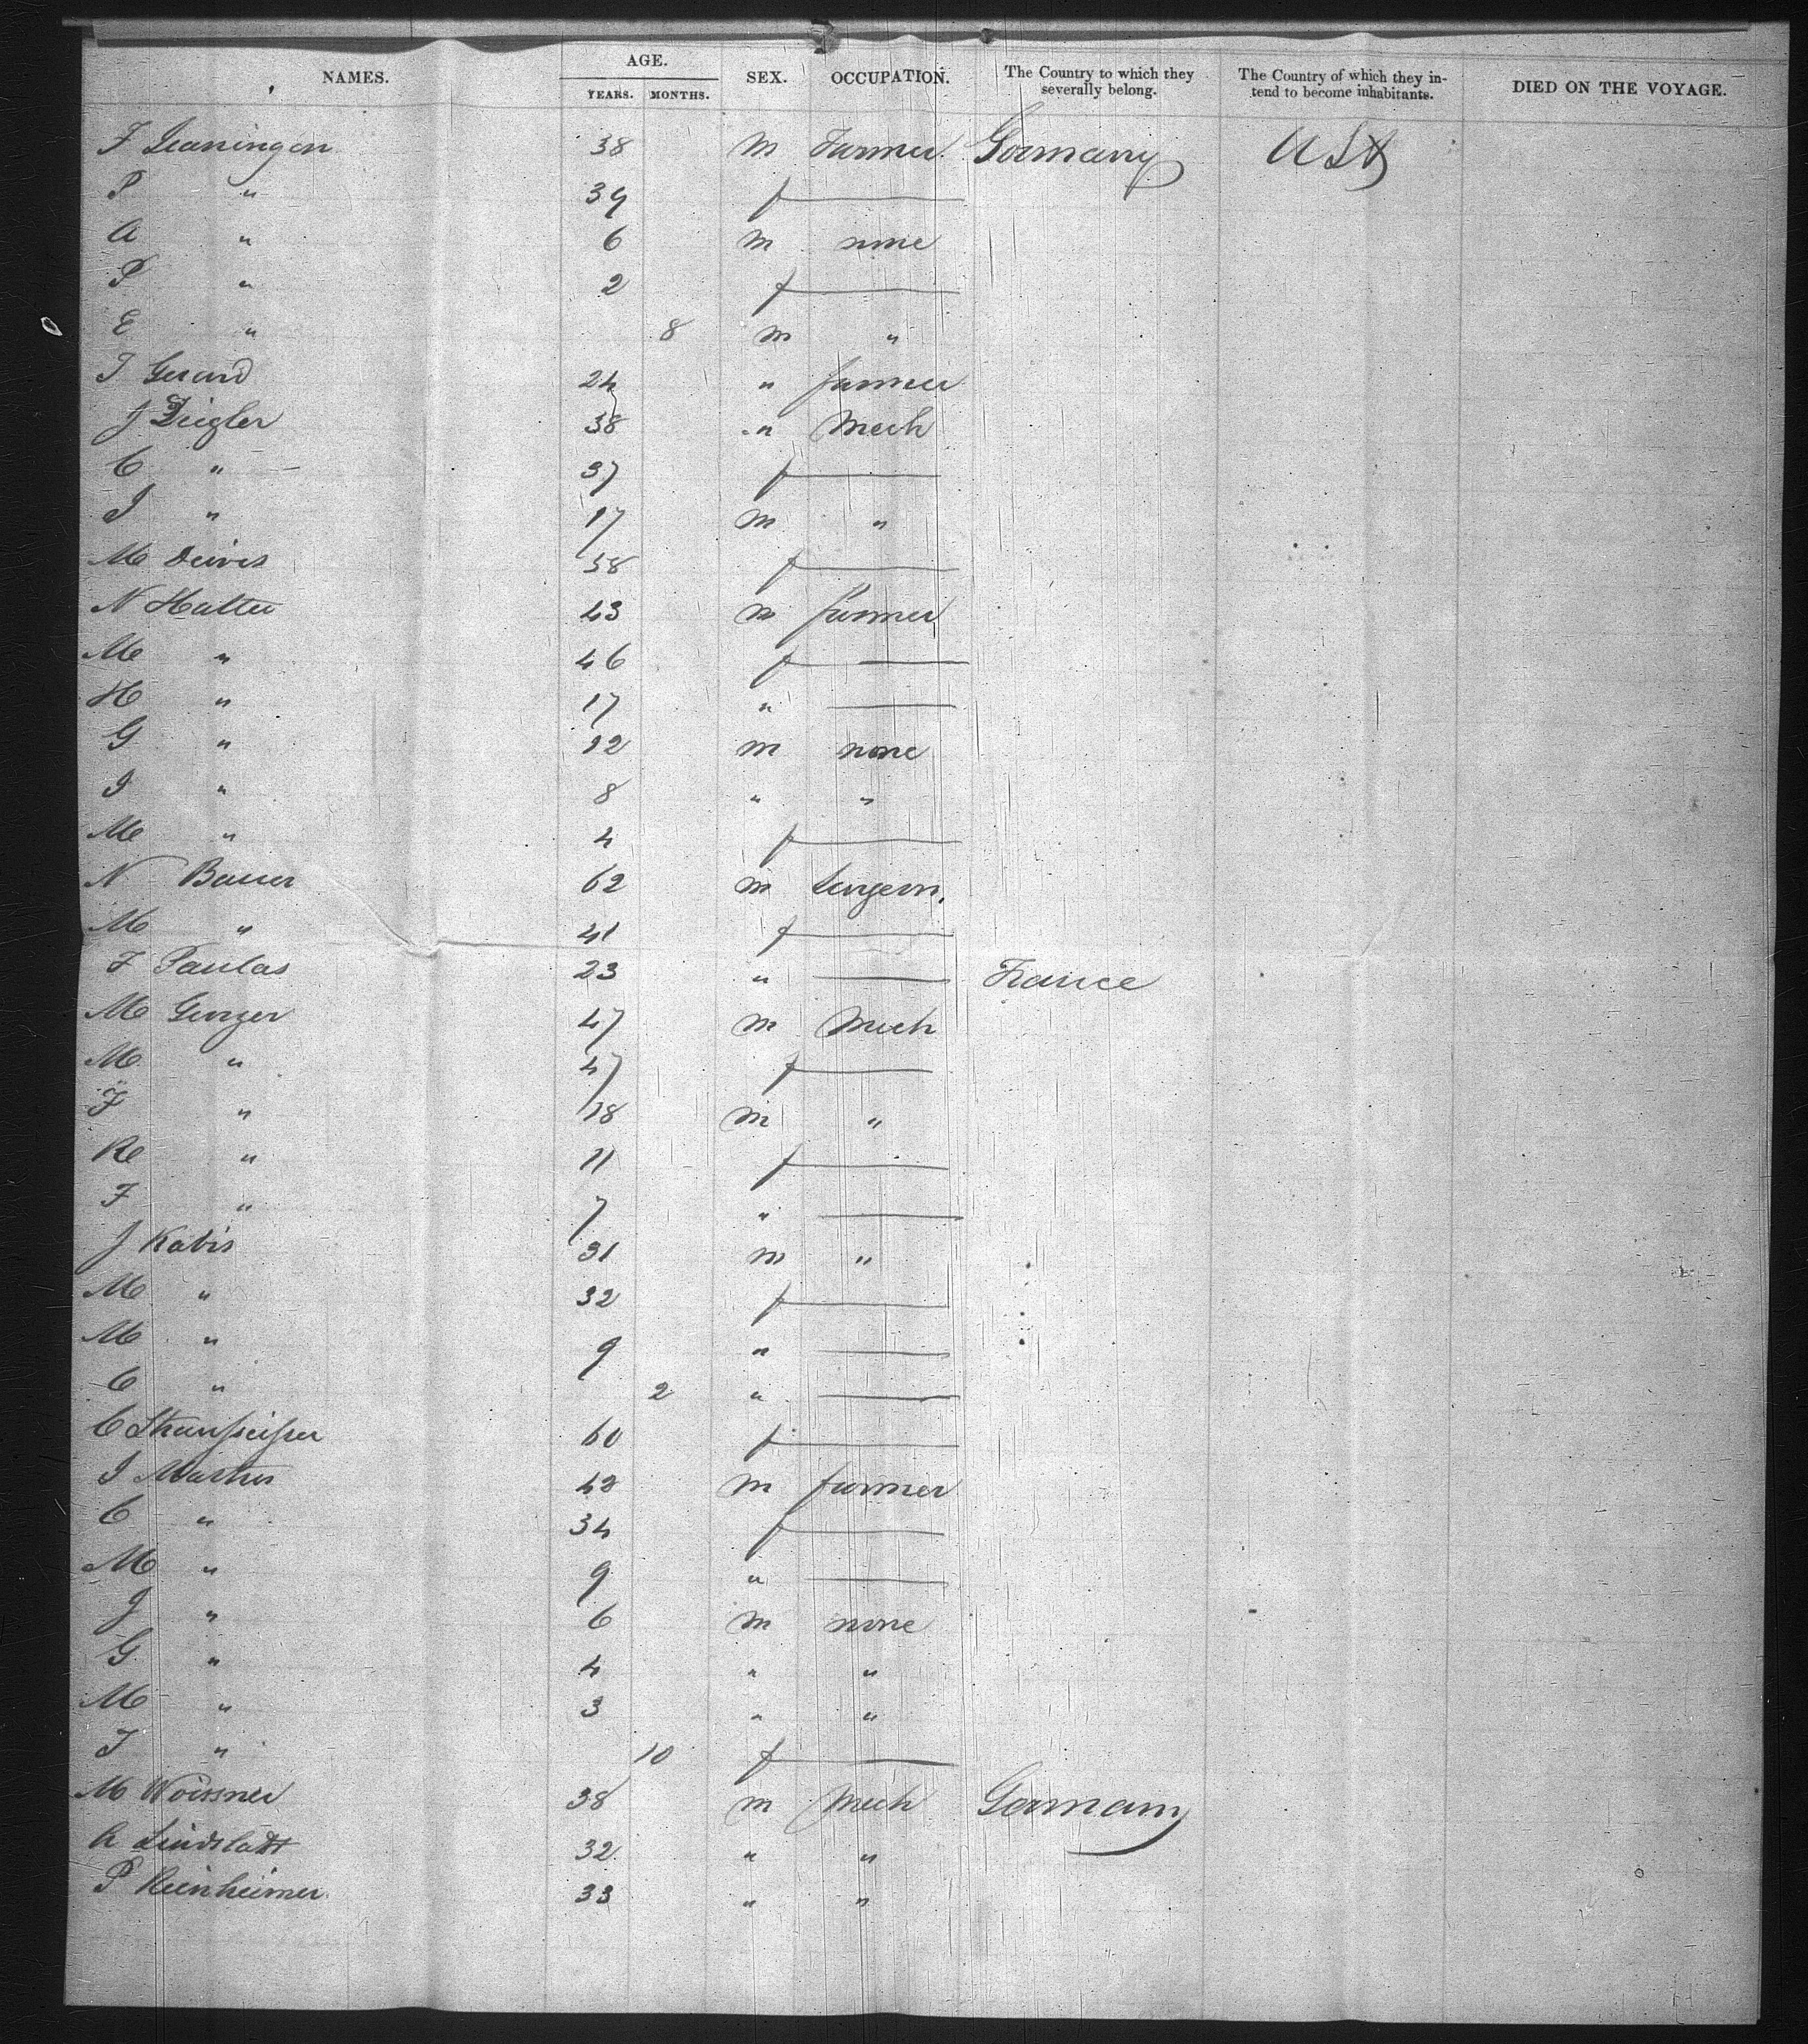 NAMES. AGE. SEX. OCCUPATION. The Country to which they severally belong. The Country of which they in-tend to become inhabitants. DIED ON THE VOYAGE.
YEARS. MONTHS.
F 38 m Farmer. Germany USA
P " 39 f
A " 6 m none
P " 2 f
E " 8 m "
J Gerard 24 " farmer
J Ziegler 38 " Mech
C " 37 f
J " 17 m "
M 58 f
N Halter 43 m farmer
M " 46 f
H " 17 "
G " 12 m none
J " 8 " "
M " 4 f
N Bauer 62 m Surgeon.
M " 41 f
F Paulas 23 " France
M Genger 47 m Mech
M " 47 f
F " 18 m "
Re " 11 f
F " 7 "
J Kabis 31 m "
M " 32 f
M " 9 "
C " 2 "
C 60 f
J Mathis 42 m farmer
C " 34 f
M " 9 "
J " 6 m none
G " 4 " "
M " 3 " "
J " 10 f
M Woissner 38 m Mech Germany
A Lindstadt 32 " "
P Reinheimer 33 " "